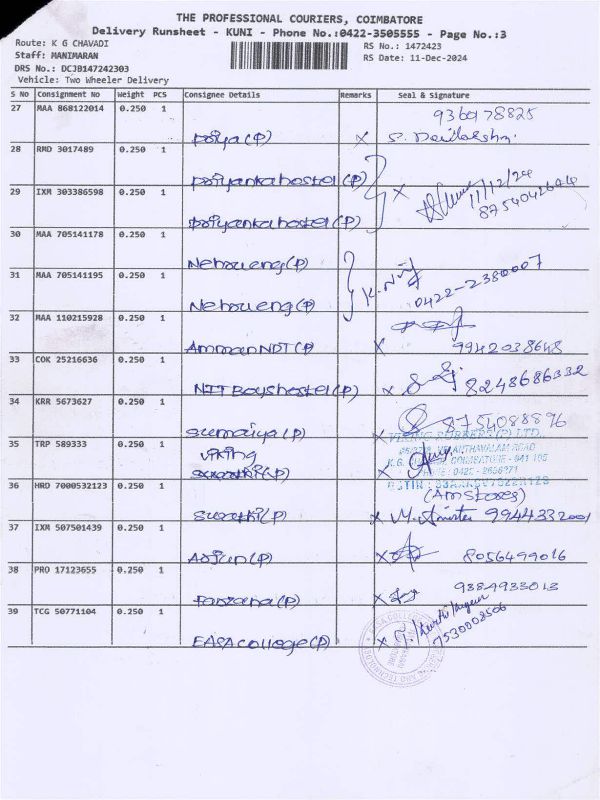 THE PROFESSIONAL COURIERS, COIMBATORE
Delivery Runsheet - KUNI - Phone No.:0422-3505555 - Page No.:3
Route: K G CHAVADI
RS No.: 1472423
Staff: MANIMARAN
RS Date: 11-Dec-2024
DRS No.: DCJB147242303
Vehicle: Two Wheeler Delivery
S No Consignment No Weight PCS Consignee Details Remarks Seal & Signature
27 MAA 868122014 0.250 1
Priya (P) x
28 RMD 3017489 0.250 1
Priyanka hostel (P) x 11/12/24
29 IXM 303386598 0.250 1
Priyanka hostel (P)
30 MAA 705141178 0.250 1
Nehru eng (P)
31 MAA 705141195 0.250 1
Nehru eng (P) 0422-2380007
32 MAA 110215928 0.250 1
Amman NDT (P) x 9942038648
33 COK 25216636 0.250 1
NIT Boys hostel (P) x 8248686332
34 KRR 5673627 0.250 1
Sumaiya (P) x 8754088896
35 TRP 589333 0.250 1
Viking
(P) x
36 HRD 7000532123 0.250 1
(AM Stores)
(P) x 9944332001
37 IXM 507501439 0.250 1
Arjun (P) x 8056499016
38 PRO 17123655 0.250 1
Farzana (P) x 9384933013
39 TCG 50771104 0.250 1
EASA college (P) x 7530008506